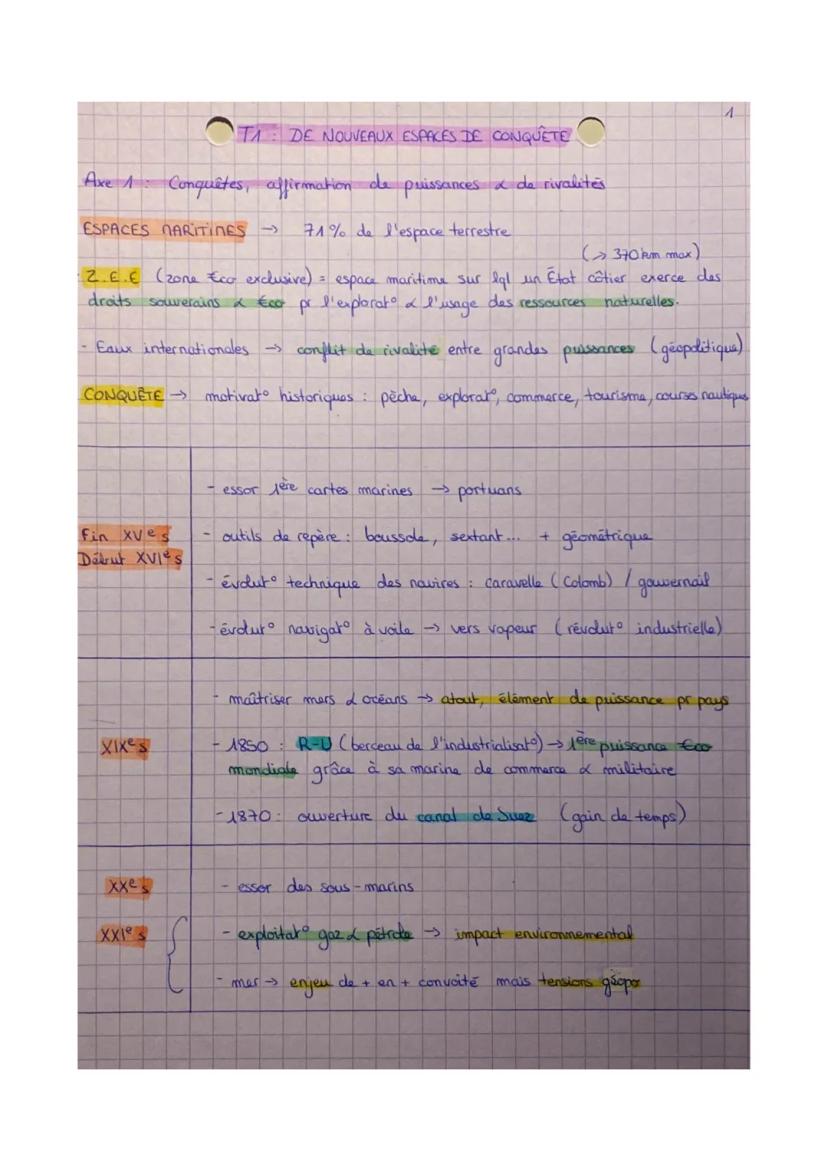 1
T1 : DE NOUVEAUX ESPACES DE CONQUÊTE
Axe 1 : Conquêtes, affirmation de puissances & de rivalités
ESPACES MARITIMES → 71% de l'espace terrestre
(→ 370 km max)
Z.E.E (zone €co exclusive) = espace maritime sur lql un État côtier exerce des
droits souverains & €co pr l'explorat° & l'usage des ressources naturelles.
- Eaux internationales → conflit de rivalité entre grandes puissances (géopolitique)
CONQUÊTE → motivat° historiques : pêche, explorat°, commerce, tourisme, courses nautiques
- essor 1ère cartes marines → portuans
Fin XVe s
Début XVIe s
- outils de repère : boussole, sextant... + géométrique
- évolut° technique des navires : caravelle (Colomb) / gouvernail
- évolut° navigat° à voile → vers vapeur (révolut° industrielle)
XIXe s
- maîtriser mers & océans → atout, élément de puissance pr pays
- 1850 : R-U (berceau de l'industrialisat°) → 1ère puissance €co
mondiale grâce à sa marine de commerce & militaire
- 1870 : ouverture du canal de Suez (gain de temps)
XXe s
- essor des sous-marins
XXIe s
- exploitat° gaz & pétrole → impact environnemental
- mer → enjeu de + en + convoité mais tensions géopo